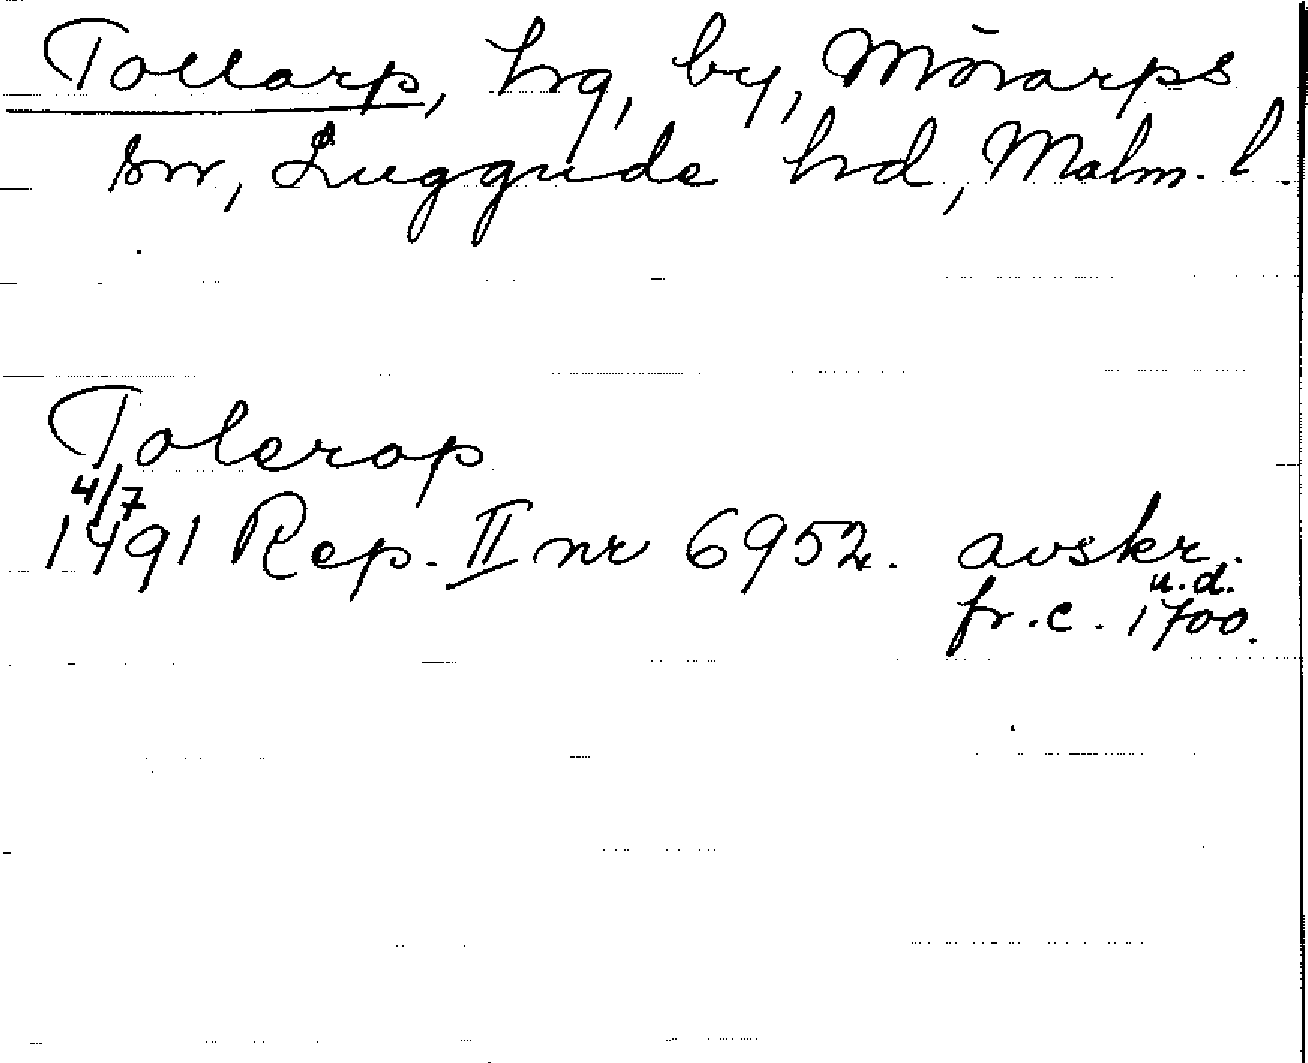 Tollarp, hg, by, Mörarps
sn, Luggude hd, Malm. l.
Tolerop
4/7
1491 Rep. II nr 6952. avskr.
u.d.
fr. c. 1700.